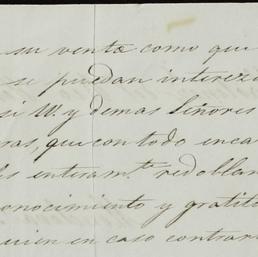 su venta como que
se puedan interez
si V. y demas Señores
ras, que con todo enca
es enteram.te redoblan
onocimiento y gratit
uien en caso contrar